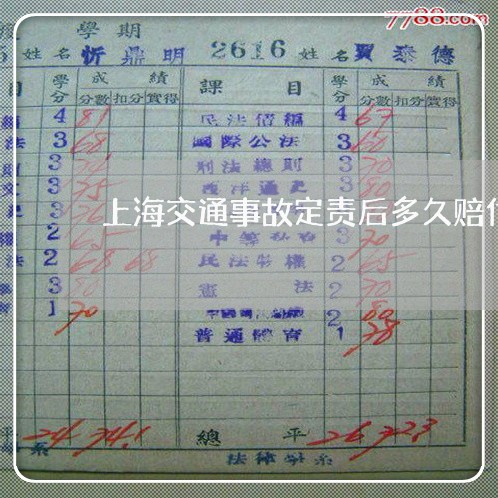 7788.com
學期
姓名 忻鼎明 2616 姓名 賈泰德
目 學分 成績 課目 學分 成績
分數 扣分 實得 分數 扣分 實得
4 81 民法債編 4 67
法 3 68 國際公法 3 60
3 刑法總則 3 70
3 75 西洋通史 3 80
上海交通事故定责后多久赔付
2 65 3 70
法 2 68 68 民法物權 2 65
3 80 憲法 2 70
1 70 2 80
普通體育 1 78
平 24 74.1 總平 26 72.3
系 法律學系